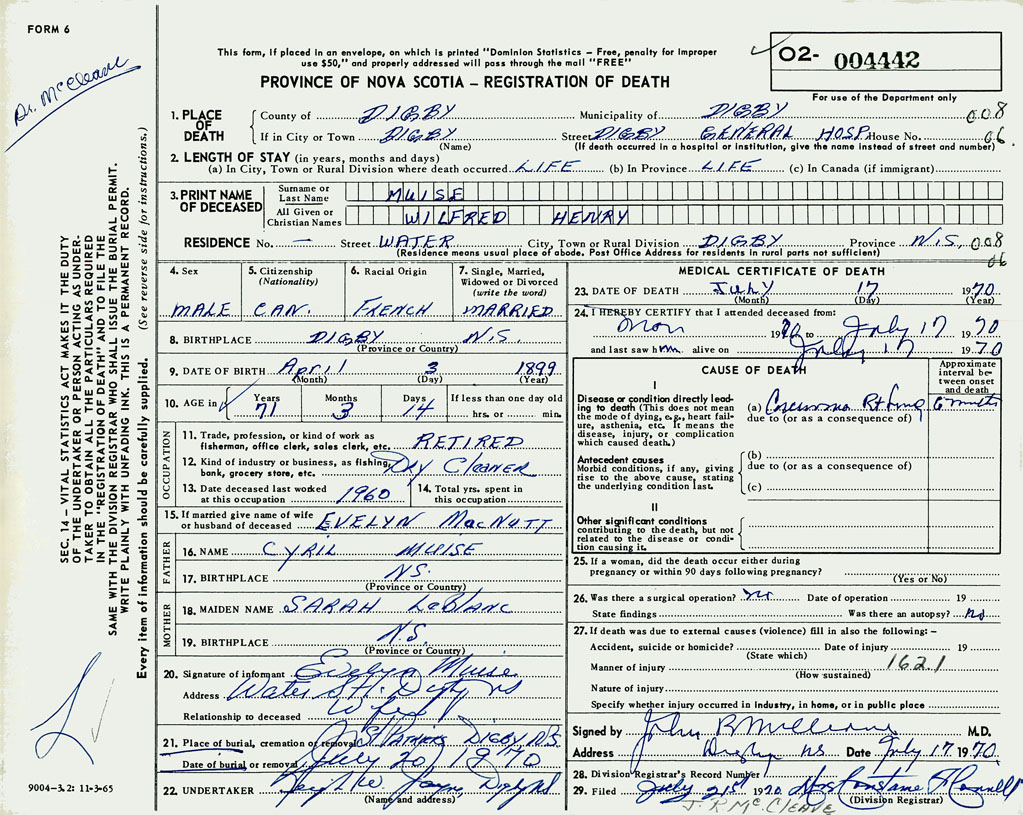 FORM 6
Dr. McCleave
This form, if placed in an envelope, on which is printed "Dominion Statistics – Free, penalty for improper
use $50," and properly addressed will pass through the mail "FREE"
PROVINCE OF NOVA SCOTIA – REGISTRATION OF DEATH
02- 004442
For use of the Department only
1. PLACE OF DEATH County of DIGBY Municipality of DIGBY 008
If in City or Town DIGBY Street DIGBY GENERAL HOSP. House No. 06
(Name) (If death occurred in a hospital or institution, give the name instead of street and number)
2. LENGTH OF STAY (in years, months and days)
(a) In City, Town or Rural Division where death occurred LIFE (b) In Province LIFE (c) In Canada (if immigrant)
3. PRINT NAME OF DECEASED Surname or Last Name MUISE
All Given or Christian Names WILFRED HENRY
RESIDENCE No. – Street WATER City, Town or Rural Division DIGBY Province N.S. 008
(Residence means usual place of abode. Post Office Address for residents in rural parts not sufficient) 06
4. Sex 5. Citizenship (Nationality) 6. Racial Origin 7. Single, Married, Widowed or Divorced (write the word)
MALE CAN. FRENCH MARRIED
8. BIRTHPLACE DIGBY N.S.
(Province or Country)
9. DATE OF BIRTH April 3 1899
(Month) (Day) (Year)
10. AGE in Years Months Days If less than one day old
71 3 14 hrs. or min.
OCCUPATION
11. Trade, profession, or kind of work as
fisherman, office clerk, sales clerk, etc. RETIRED
12. Kind of industry or business, as fishing,
bank, grocery store, etc. Dry Cleaner
13. Date deceased last worked
at this occupation 1960
14. Total yrs. spent in
this occupation
15. If married give name of wife
or husband of deceased EVELYN MacNUTT
FATHER
16. NAME CYRIL MUISE
17. BIRTHPLACE N.S.
(Province or Country)
MOTHER
18. MAIDEN NAME SARAH LeBLANC
19. BIRTHPLACE N.S.
(Province or Country)
20. Signature of informant Evelyn Muise
Address Water St. Digby NS
Relationship to deceased Wife
21. Place of burial, cremation or removal St Patricks DIGBY N.S.
Date of burial or removal July 20, 1970
22. UNDERTAKER Digby NS
(Name and address)
MEDICAL CERTIFICATE OF DEATH
23. DATE OF DEATH July 17 1970
(Month) (Day) (Year)
24. I HEREBY CERTIFY that I attended deceased from:
1970 to July 17 1970
and last saw him alive on July 17 1970
CAUSE OF DEATH
Approximate interval between onset and death
I
Disease or condition directly leading
to death (This does not mean
the mode of dying, e.g., heart failure,
asthenia, etc. It means the
disease, injury, or complication
which caused death.)
(a) Carcinoma Rt Lung 6 months
due to (or as a consequence of)
Antecedent causes
Morbid conditions, if any, giving
rise to the above cause, stating
the underlying condition last.
(b)
due to (or as a consequence of)
(c)
II
Other significant conditions
contributing to the death, but not
related to the disease or condition
causing it.
25. If a woman, did the death occur either during
pregnancy or within 90 days following pregnancy?
(Yes or No)
26. Was there a surgical operation? no Date of operation 19
State findings Was there an autopsy? no
27. If death was due to external causes (violence) fill in also the following: –
Accident, suicide or homicide? Date of injury 19
(State which)
Manner of injury 162.1
(How sustained)
Nature of injury
Specify whether injury occurred in industry, in home, or in public place
Signed by John R McCleave M.D.
Address Digby NS Date July 17 1970
28. Division Registrar's Record Number
29. Filed July 21st 1970 Mrs Constance
(Division Registrar)
J. R. McCLEAVE
SEC. 14 – VITAL STATISTICS ACT MAKES IT THE DUTY
OF THE UNDERTAKER OR PERSON ACTING AS UNDERTAKER
TO OBTAIN ALL THE PARTICULARS REQUIRED
IN THE "REGISTRATION OF DEATH" AND TO FILE THE
SAME WITH THE DIVISION REGISTRAR WHO SHALL ISSUE THE BURIAL PERMIT.
WRITE PLAINLY WITH UNFADING INK. THIS IS A PERMANENT RECORD.
Every item of information should be carefully supplied. (See reverse side for instructions.)
9004-3.2: 11-3-65